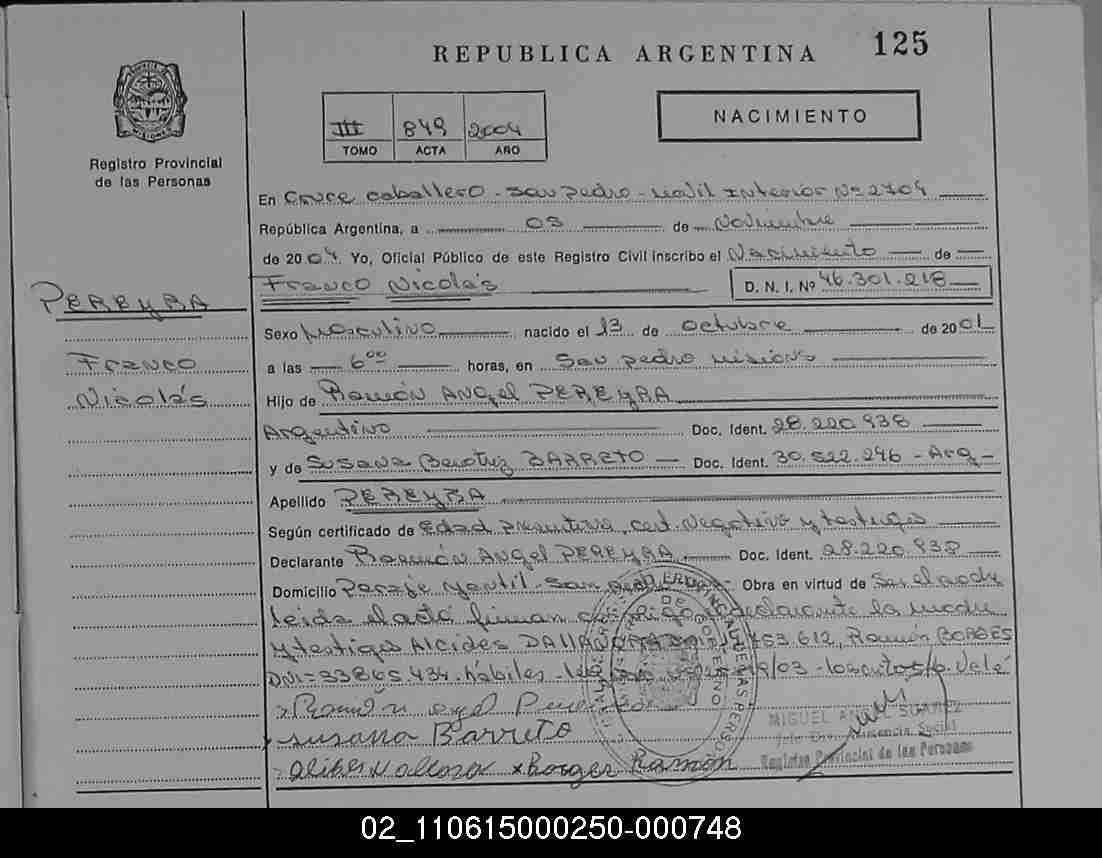 REPUBLICA ARGENTINA 125
PROVINCIA DE MISIONES
Registro Provincial
de las Personas
III 849 2004
TOMO ACTA AÑO
NACIMIENTO
En Cruce caballero - San Pedro - Movil Interior Nº 2704
República Argentina, a 03 de Noviembre
de 2004. Yo, Oficial Público de este Registro Civil inscribo el Nacimiento de
Franco Nicolás D. N. I. Nº 46.301.218
PEREYRA
Franco
Nicolás
Sexo Masculino nacido el 13 de octubre de 2001
a las 6 00 horas, en San pedro misiones
Hijo de Ramón ANgel PEREYRA
Argentino Doc. Ident. 28.220.938
y de Susana Beatriz BARRETO Doc. Ident. 30.522.296 - Arg -
Apellido PEREYRA
Según certificado de Edad presuntiva, cert. Negativo y testigos
Declarante Ramón ANgel PEREYRA Doc. Ident. 28.220.938
Domicilio Paraje Obra en virtud de Ser el padre
leida el acta firman conmigo declarante la madre
y testigos Alcides 453.612, Ramón BORGES
DNI = 33865.434. hábiles
Ramón
susana Barreto
Borger Ramón
MIGUEL ANGEL SUAREZ
Registro Provincial de las Personas
02_110615000250-000748